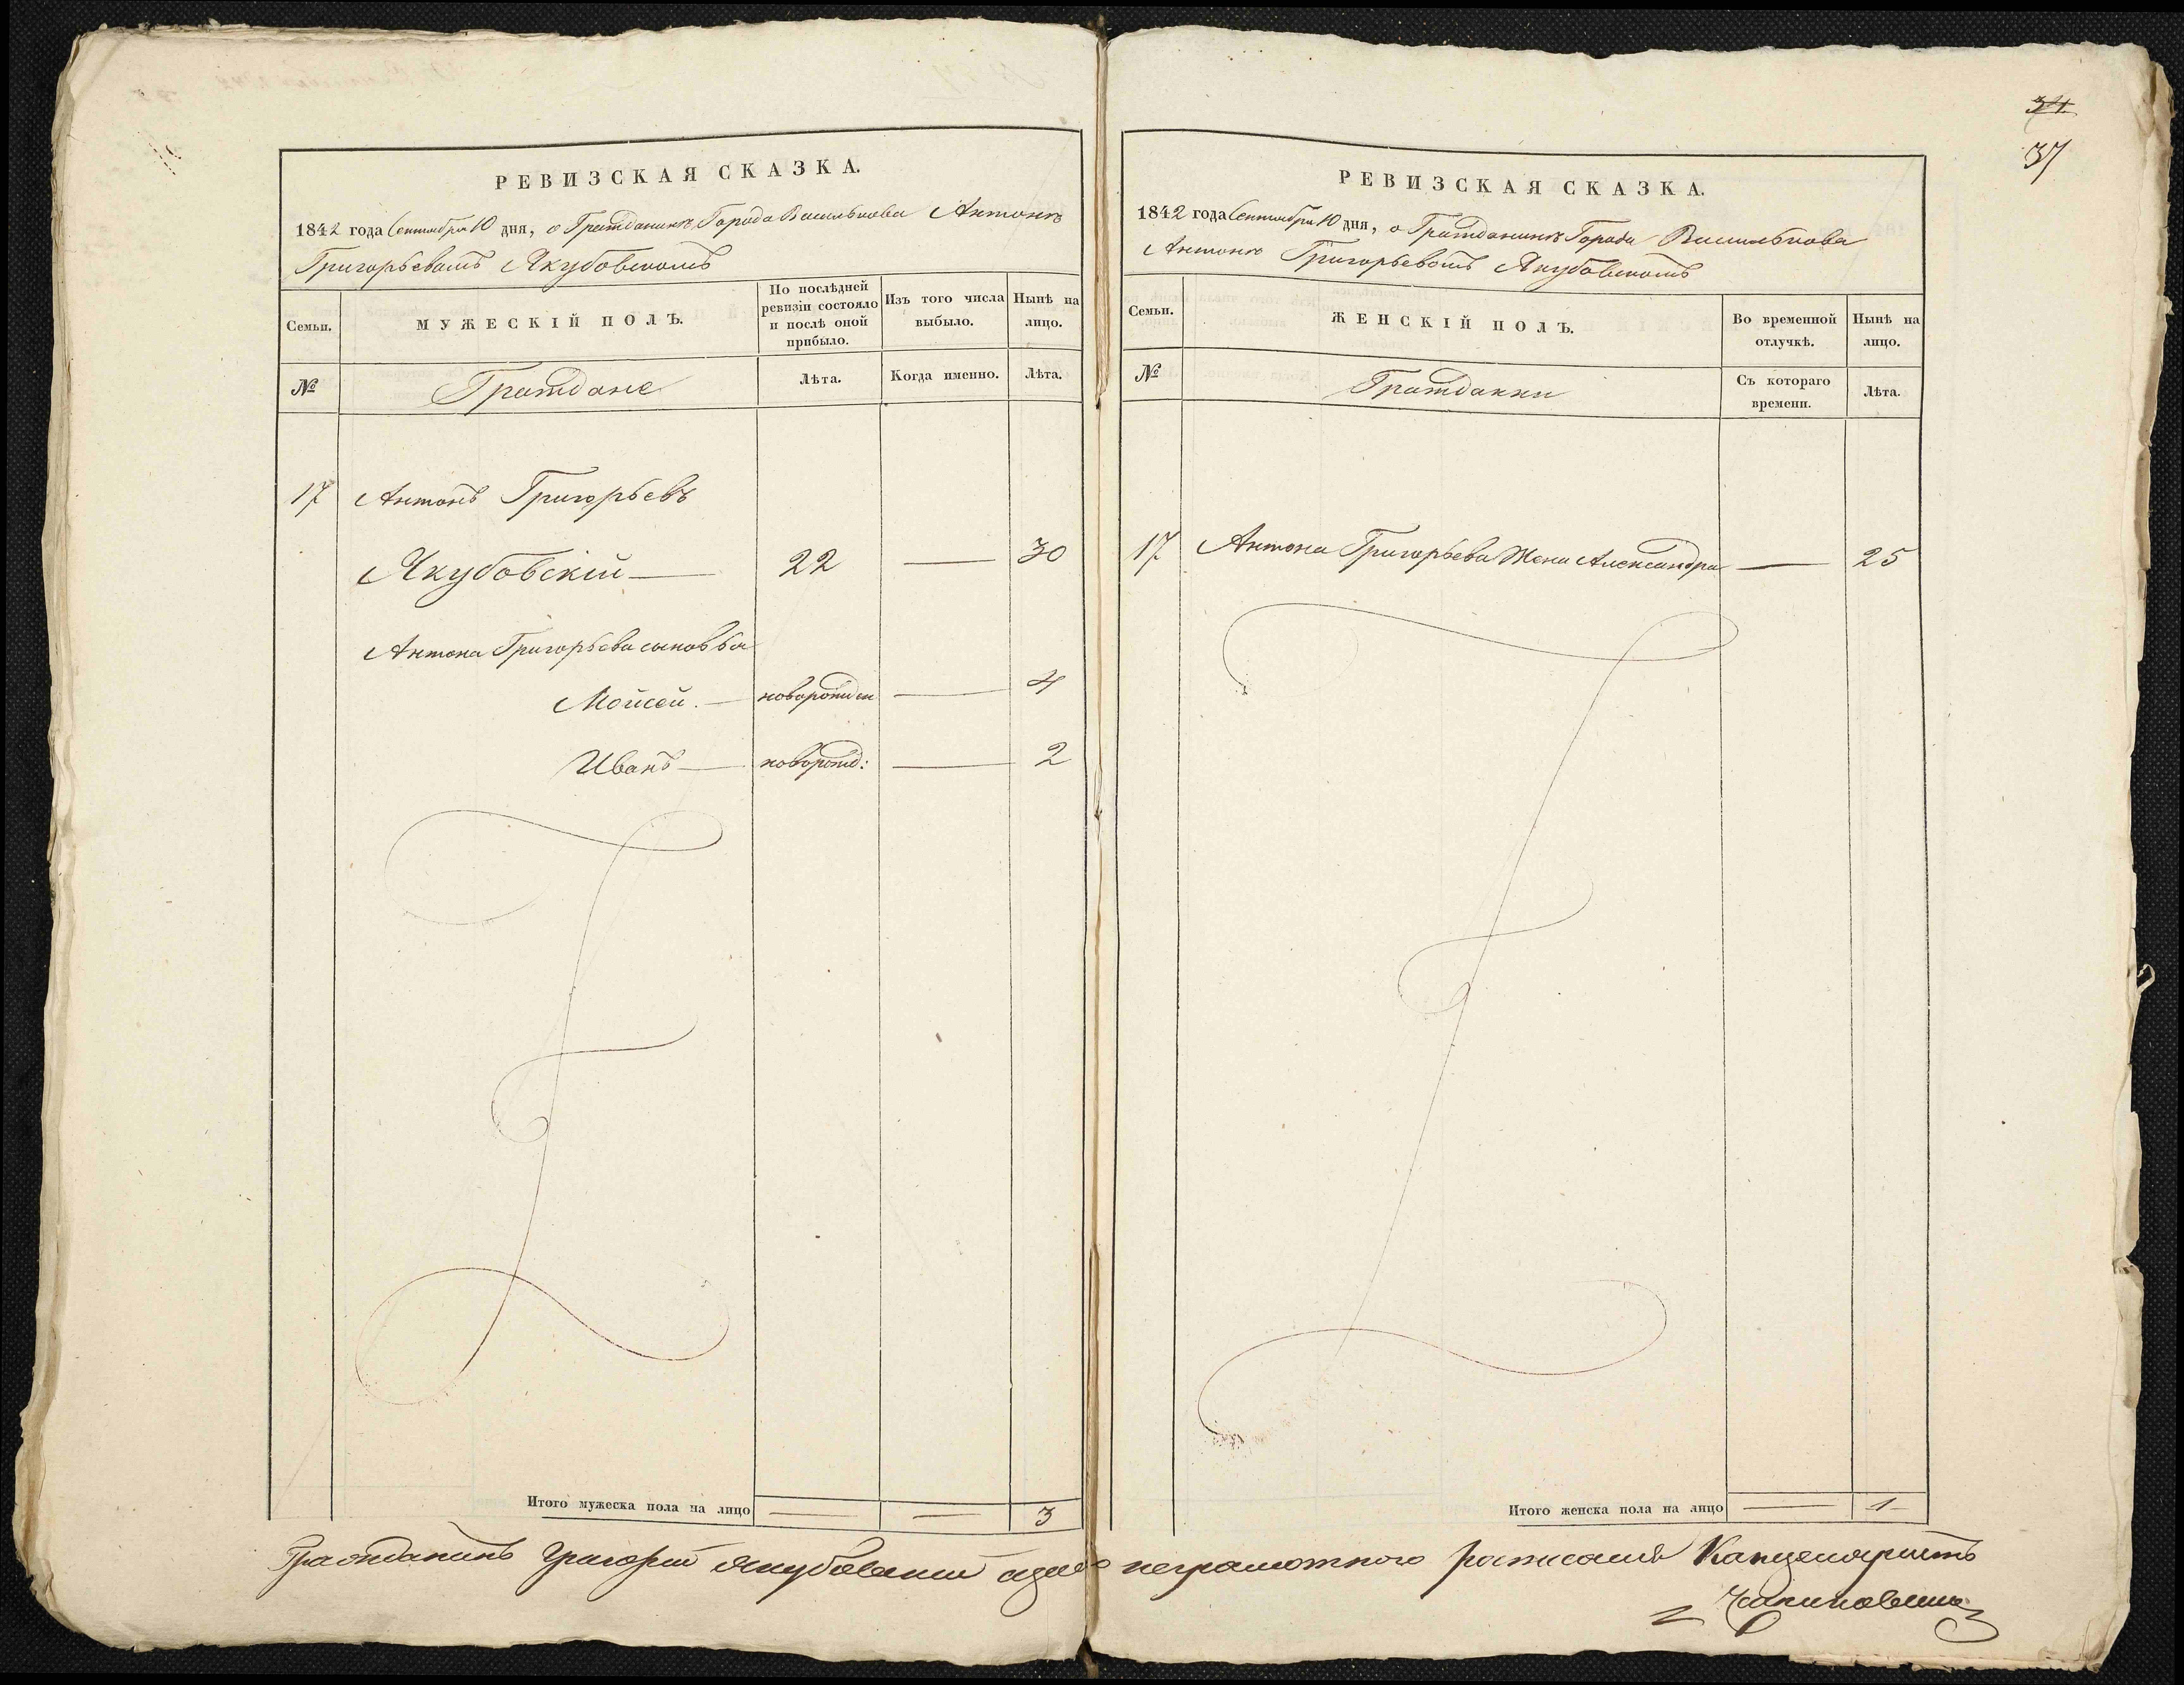 РЕВИЗСКАЯ СКАЗКА.
1842 года Сентября 10 дня, о Гражданинѣ Города Василькова Антонѣ
Григорьевомъ Якубовскомъ
Семьи.
МУЖЕСКІЙ ПОЛЪ.
По послѣдней
ревизіи состояло
и послѣ оной
прибыло.
Изъ того числа
выбыло.
Нынѣ на
лицо.
№
Граждане
Лѣта.
Когда именно.
Лѣта.
17 Антонъ Григорьевъ
Якубовскій — 22 — 30
Антона Григорьева сыновья
Мойсей. — новорожден — 4
Иванъ — новорожд: — 2
Итого мужеска пола на лицо — — 3
34
37
РЕВИЗСКАЯ СКАЗКА.
1842 года Сентября 10 дня, о Гражданинѣ Города Василькова
Антонѣ Григорьевомъ Якубовскомъ
Семьи.
ЖЕНСКІЙ ПОЛЪ.
Во временной
отлучкѣ.
Нынѣ на
лицо.
№
Гражданки
Съ котораго
времени.
Лѣта.
17 Антона Григорьева Жена Александра — 25
Итого женска пола на лицо — 1
Гражданинъ Григорій Якубовскій а за неграмотного росписался Канцеляристъ